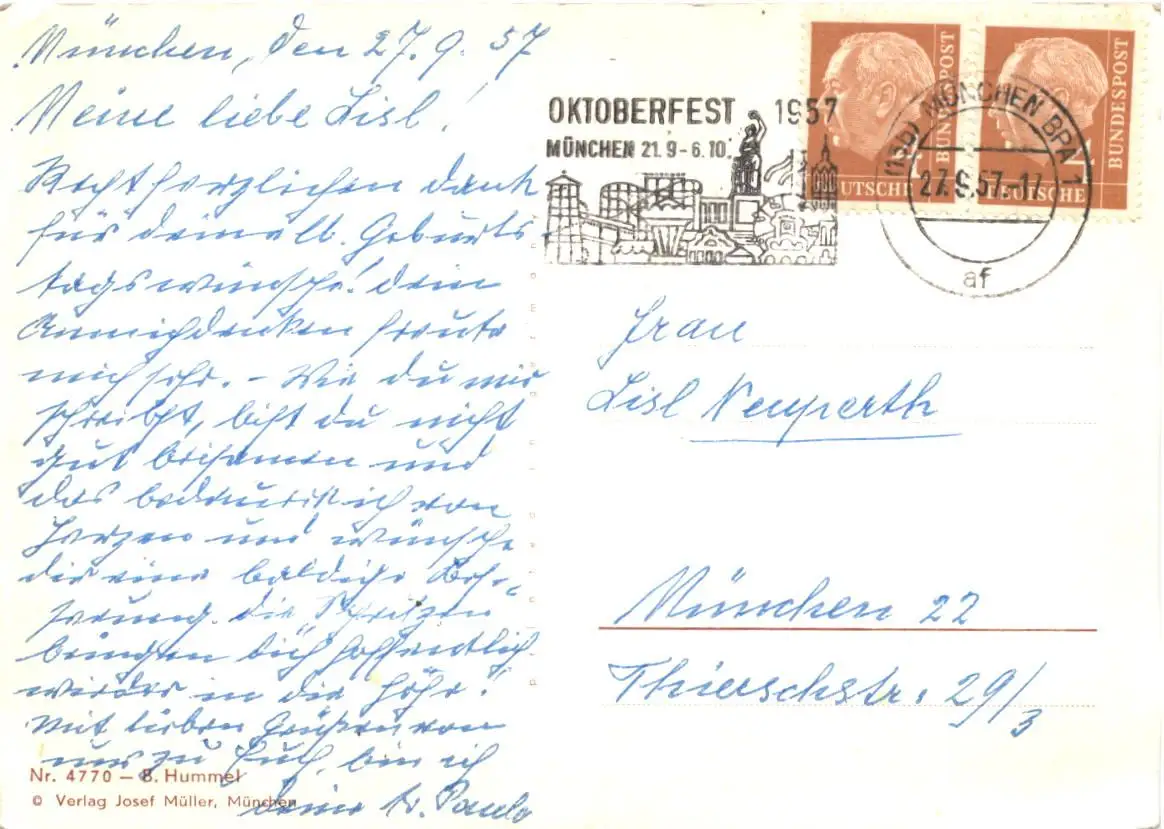 München, den 27.9.57
Meine liebe Lisl!
Recht herzlichen Dank
für deine lb. Geburts-
tagswünsche! Dein
Anmichdenken freute
mich sehr. – Wie du mir
schreibst, bist du nicht
gut beisammen und
das bedaure ich von
Herzen und wünsche
dir eine baldige Besse-
rung. Die Spritzen
bringen dich hoffentlich
wieder in die Höhe!
Mit lieben Grüßen von
uns zu Euch, bin ich
deine Paula
Nr. 4770 – B. Hummel
© Verlag Josef Müller, München
OKTOBERFEST 1957
MÜNCHEN 21.9-6.10.
DEUTSCHE BUNDESPOST
DEUTSCHE BUNDESPOST
(13b) MÜNCHEN BPA 1
27.9.57-17
af
Frau
Lisl Neuperth
München 22
Thierschstr. 29/3